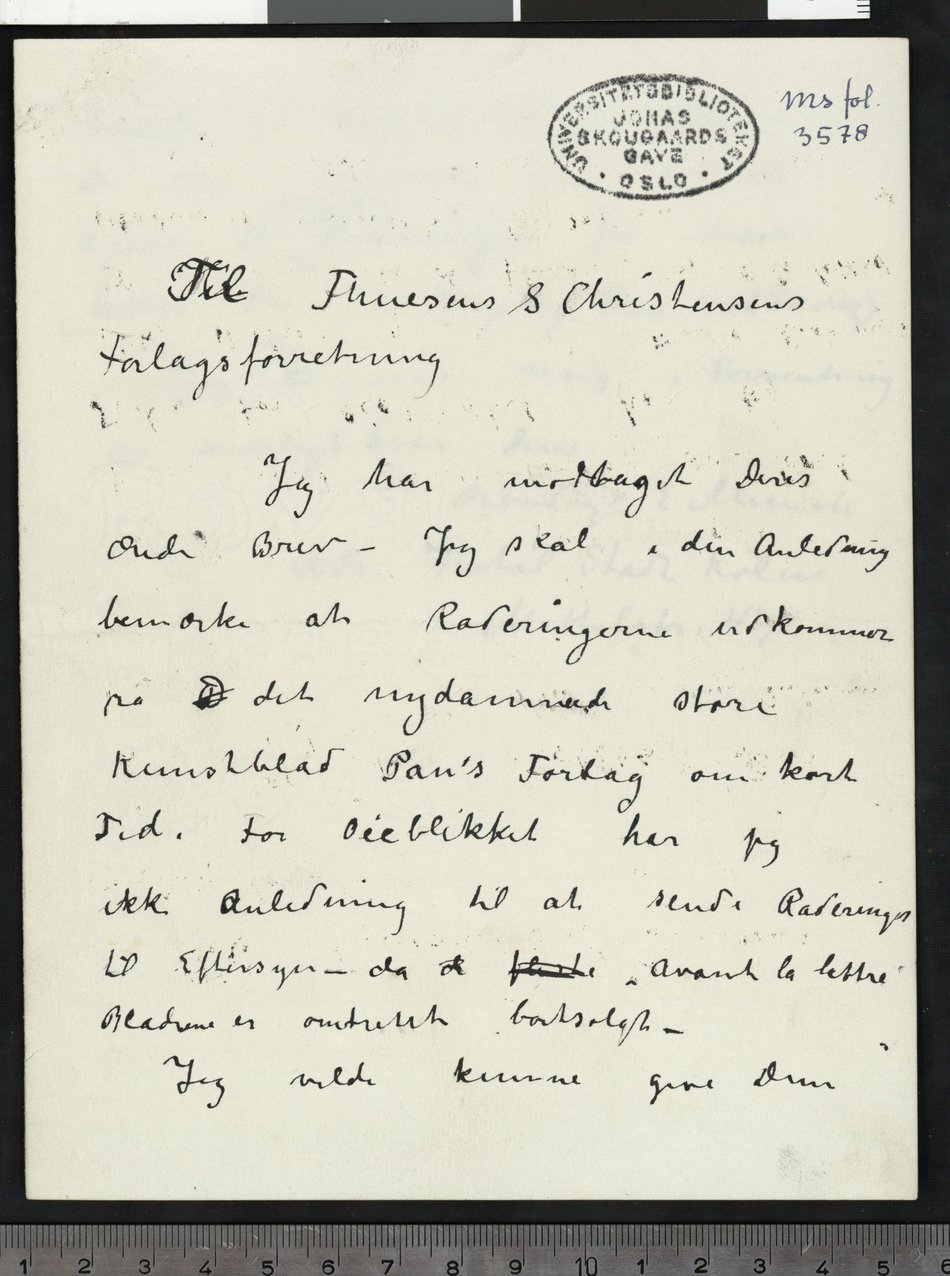 UNIVERSITETSBIBLIOTEKET
JONAS
SKOUGAARDS
GAVE
• OSLO •
Ms fol.
3578
Til Thuesens & Christensens
Forlagsforretning
Jeg har modtaget Deres
ærede Brev – Jeg skal i den Anledning
bemærke at Raderingerne udkommer
på det nydannede store
Kunstblad Pan's Forlag om kort
Tid. For Øieblikket har jeg
ikke Anledning til at sende Raderinger
til Eftersyn – da de fleste „avant la lettre"
Bladene er omtrent bortsolgt –
Jeg vilde kunne give Dem
1 2 3 4 5 6 7 8 9 10 1 2 3 4 5 6